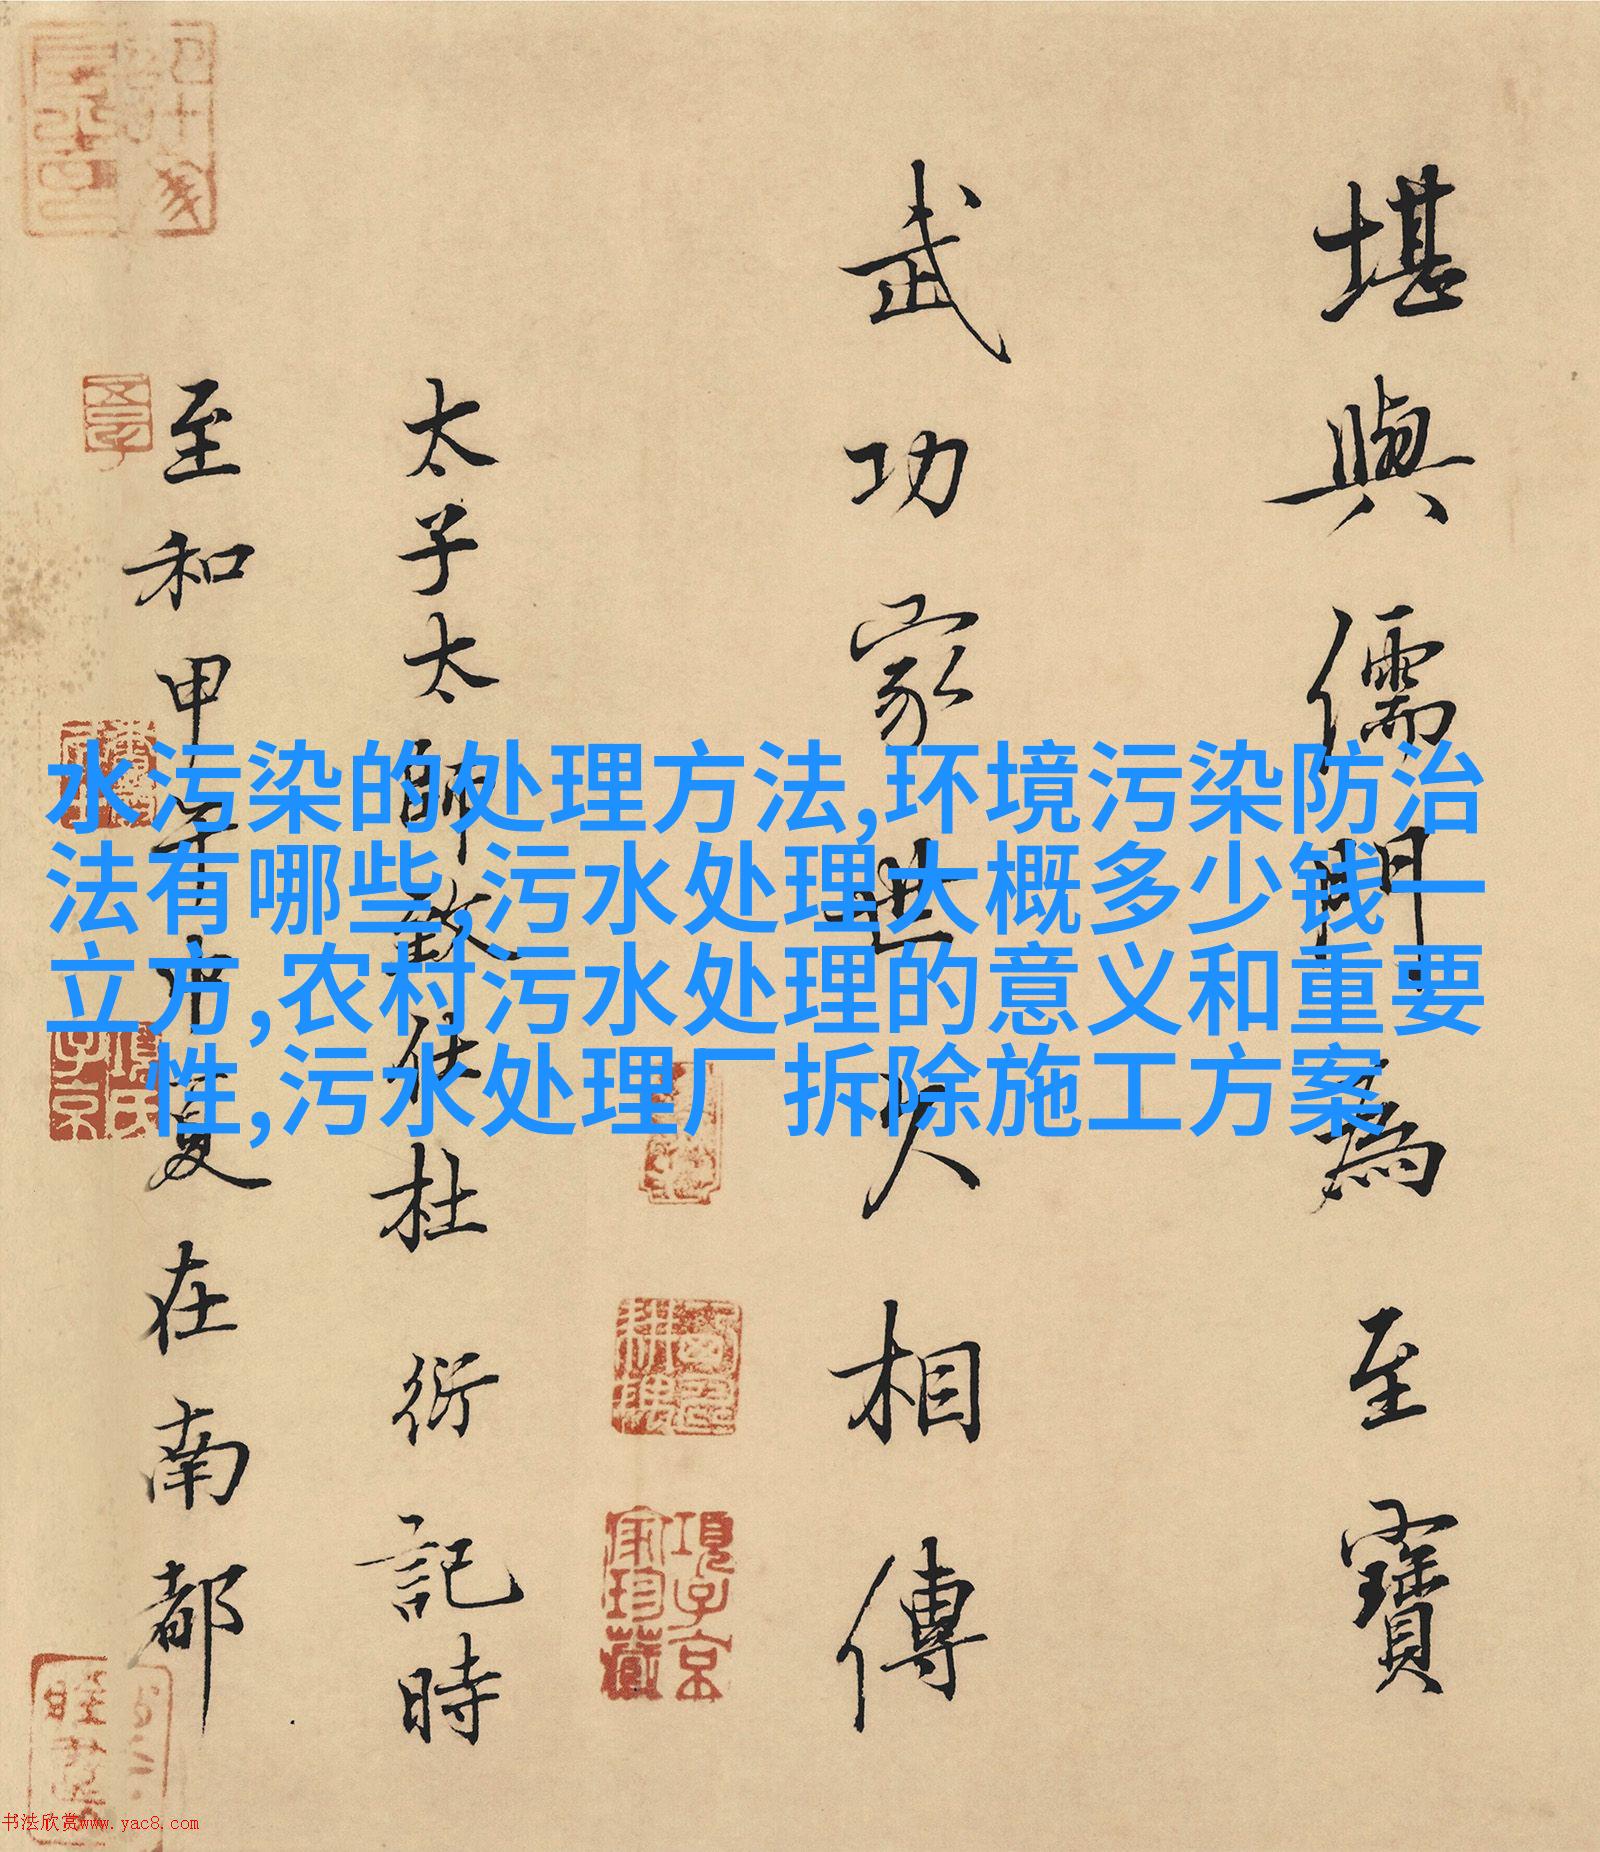 堪與儒門為至寶
武功家世久相傳
太子太師致仕杜衍記時
至和甲午中夏在南都
水污染的处理方法,环境污染防治
法有哪些,污水处理大概多少钱一
立方,农村污水处理的意义和重要
性,污水处理厂拆除施工方案
項子京
家珍藏
书法欣赏www.yac8.com